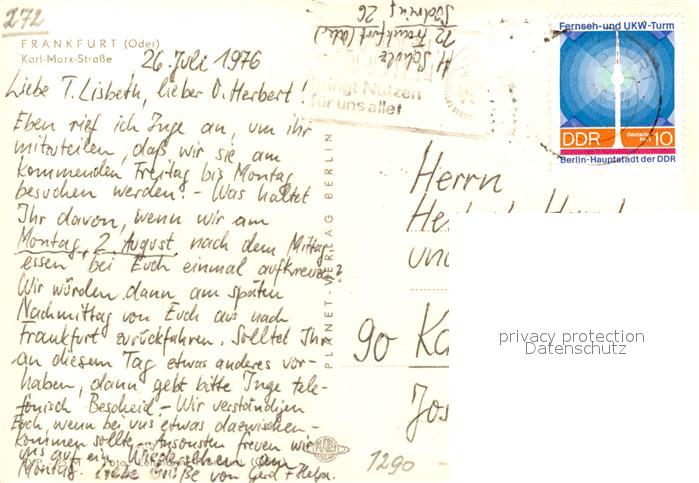 272
FRANKFURT (Oder)
Karl-Marx-Straße
26. Juli 1976
Liebe T. Lisbeth, lieber O. Herbert!
Eben rief ich Inge an, um ihr
mitzuteilen, daß wir sie am
kommenden Freitag bis Montag
besuchen werden. - Was haltet
Ihr davon, wenn wir am
Montag, 2. August, nach dem Mittag-
essen bei Euch einmal aufkreuzen?
Wir würden dann am späten
Nachmittag von Euch aus nach
Frankfurt zurückfahren. Solltet Ihr
an diesem Tag etwas anderes vor-
haben, dann gebt bitte Inge tele-
fonisch Bescheid - Wir verständigen
Euch, wenn bei uns etwas dazwischen-
kommen sollte. Ansonsten freuen wir
uns auf ein Wiedersehen am
Montag. Liebe Grüße von Gerd + Helga
PLANET-VERLAG BERLIN
PLANET
H. Scholz
12 Frankfurt (Oder)
Südring 26
bringt Nutzen
für uns alle!
Fernseh- und UKW-Turm
DDR
Deutsche Post
10
Berlin-Hauptstadt der DDR
Herrn
und
90
Jos
1290
privacy protection
Datenschutz